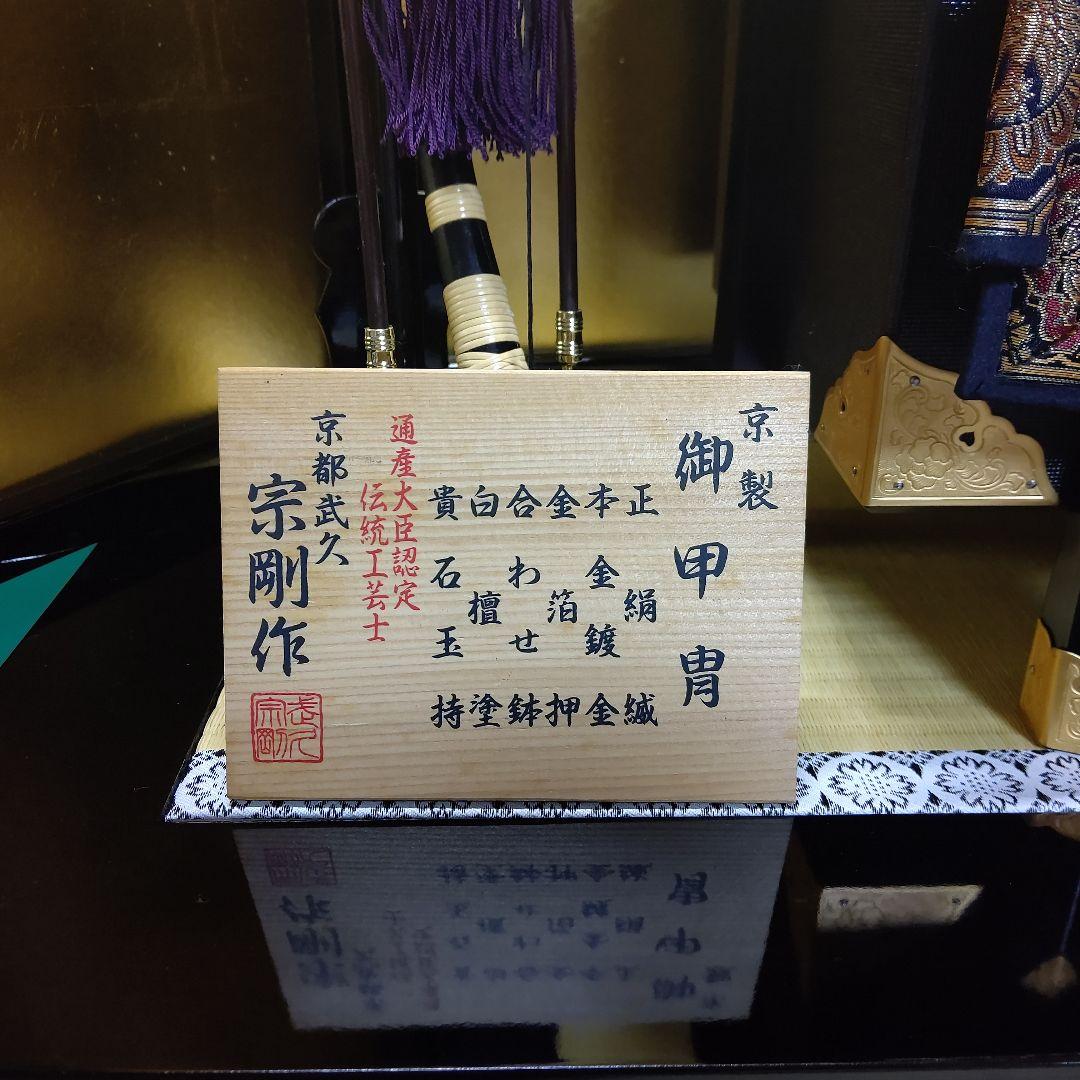 京製
御甲冑
正絹縅
本金鍍金
金箔押
合わせ鉢
白檀塗
貴石玉持
通産大臣認定
伝統工芸士
京都武久
宗剛作
武久宗剛